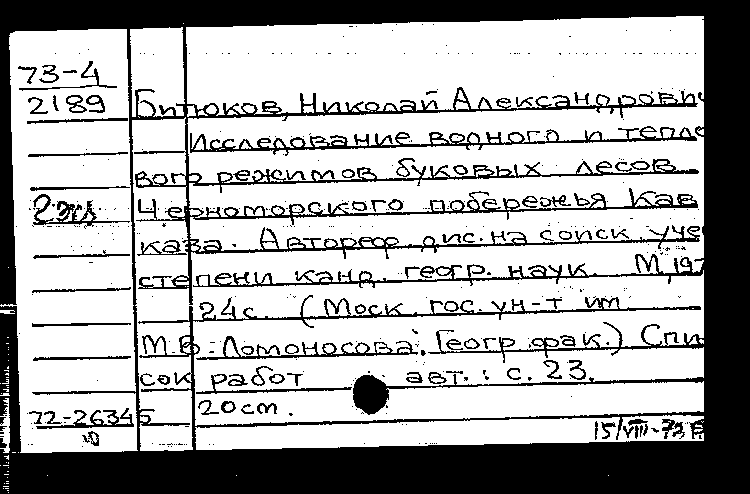 73-4
2189
Битюков, Николай Александрович
Исследование водного и тепло
вого режимов буковых лесов
2 экз
Черноморского побережья Кав
каза. Автореф. дис. на соиск. учен
степени канд. геогр. наук. М, 197
24 с. (Моск. гос. ун-т им
М.В. Ломоносова. Геогр. фак.) Спи
сок работ авт.: с. 23.
72-26345
20 cm.
15/VIII-73